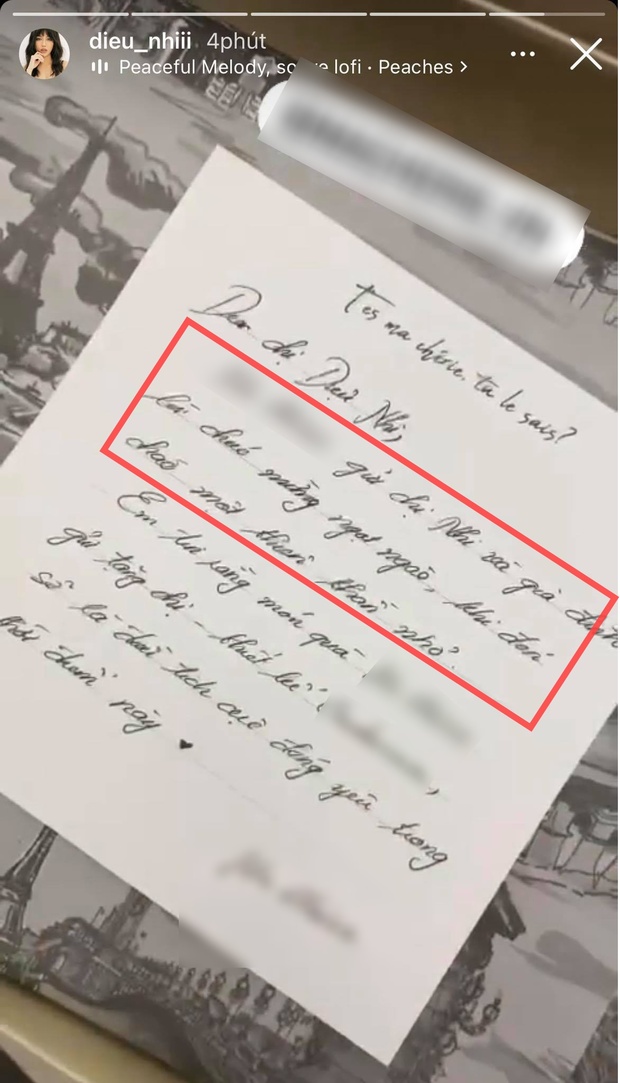 dieu_nhiii 4phút
Peaceful Melody, so e lofi · Peaches
T'es ma chérie. tu le sais?
Dear chị Diệu Nhi,
gửi chị Nhi và gia đình
lời chúc mừng ngọt ngào, khi đón
chào một thiên thần nhỏ.
Em tin rằng món quà
gửi tặng chị - thiết kế
,
sẽ là dấu tích cực đáng yêu trong
thời điểm này ♥